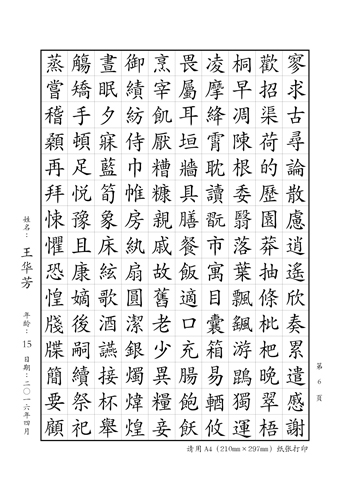 寥求古尋論散慮逍遙欣奏累遣感謝
歡招渠荷的歷園莽抽條枇杷晚翠梧
桐早凋陳根委翳落葉飄颻游鵾獨運
凌摩絳霄耽讀翫市寓目囊箱易輶攸
畏屬耳垣牆具膳餐飯適口充腸飽飫
烹宰飢厭糟糠親戚故舊老少異糧妾
御績紡侍巾帷房紈扇圓潔銀燭煒煌
晝眠夕寐藍筍象床絃歌酒讌接杯舉
觴矯手頓足悅豫且康嫡後嗣續祭祀
蒸嘗稽顙再拜悚懼恐惶牋牒簡要顧
姓名：王华芳 年龄：15 日期：二〇一六年四月
第6页
请用A4（210mm×297mm）纸张打印